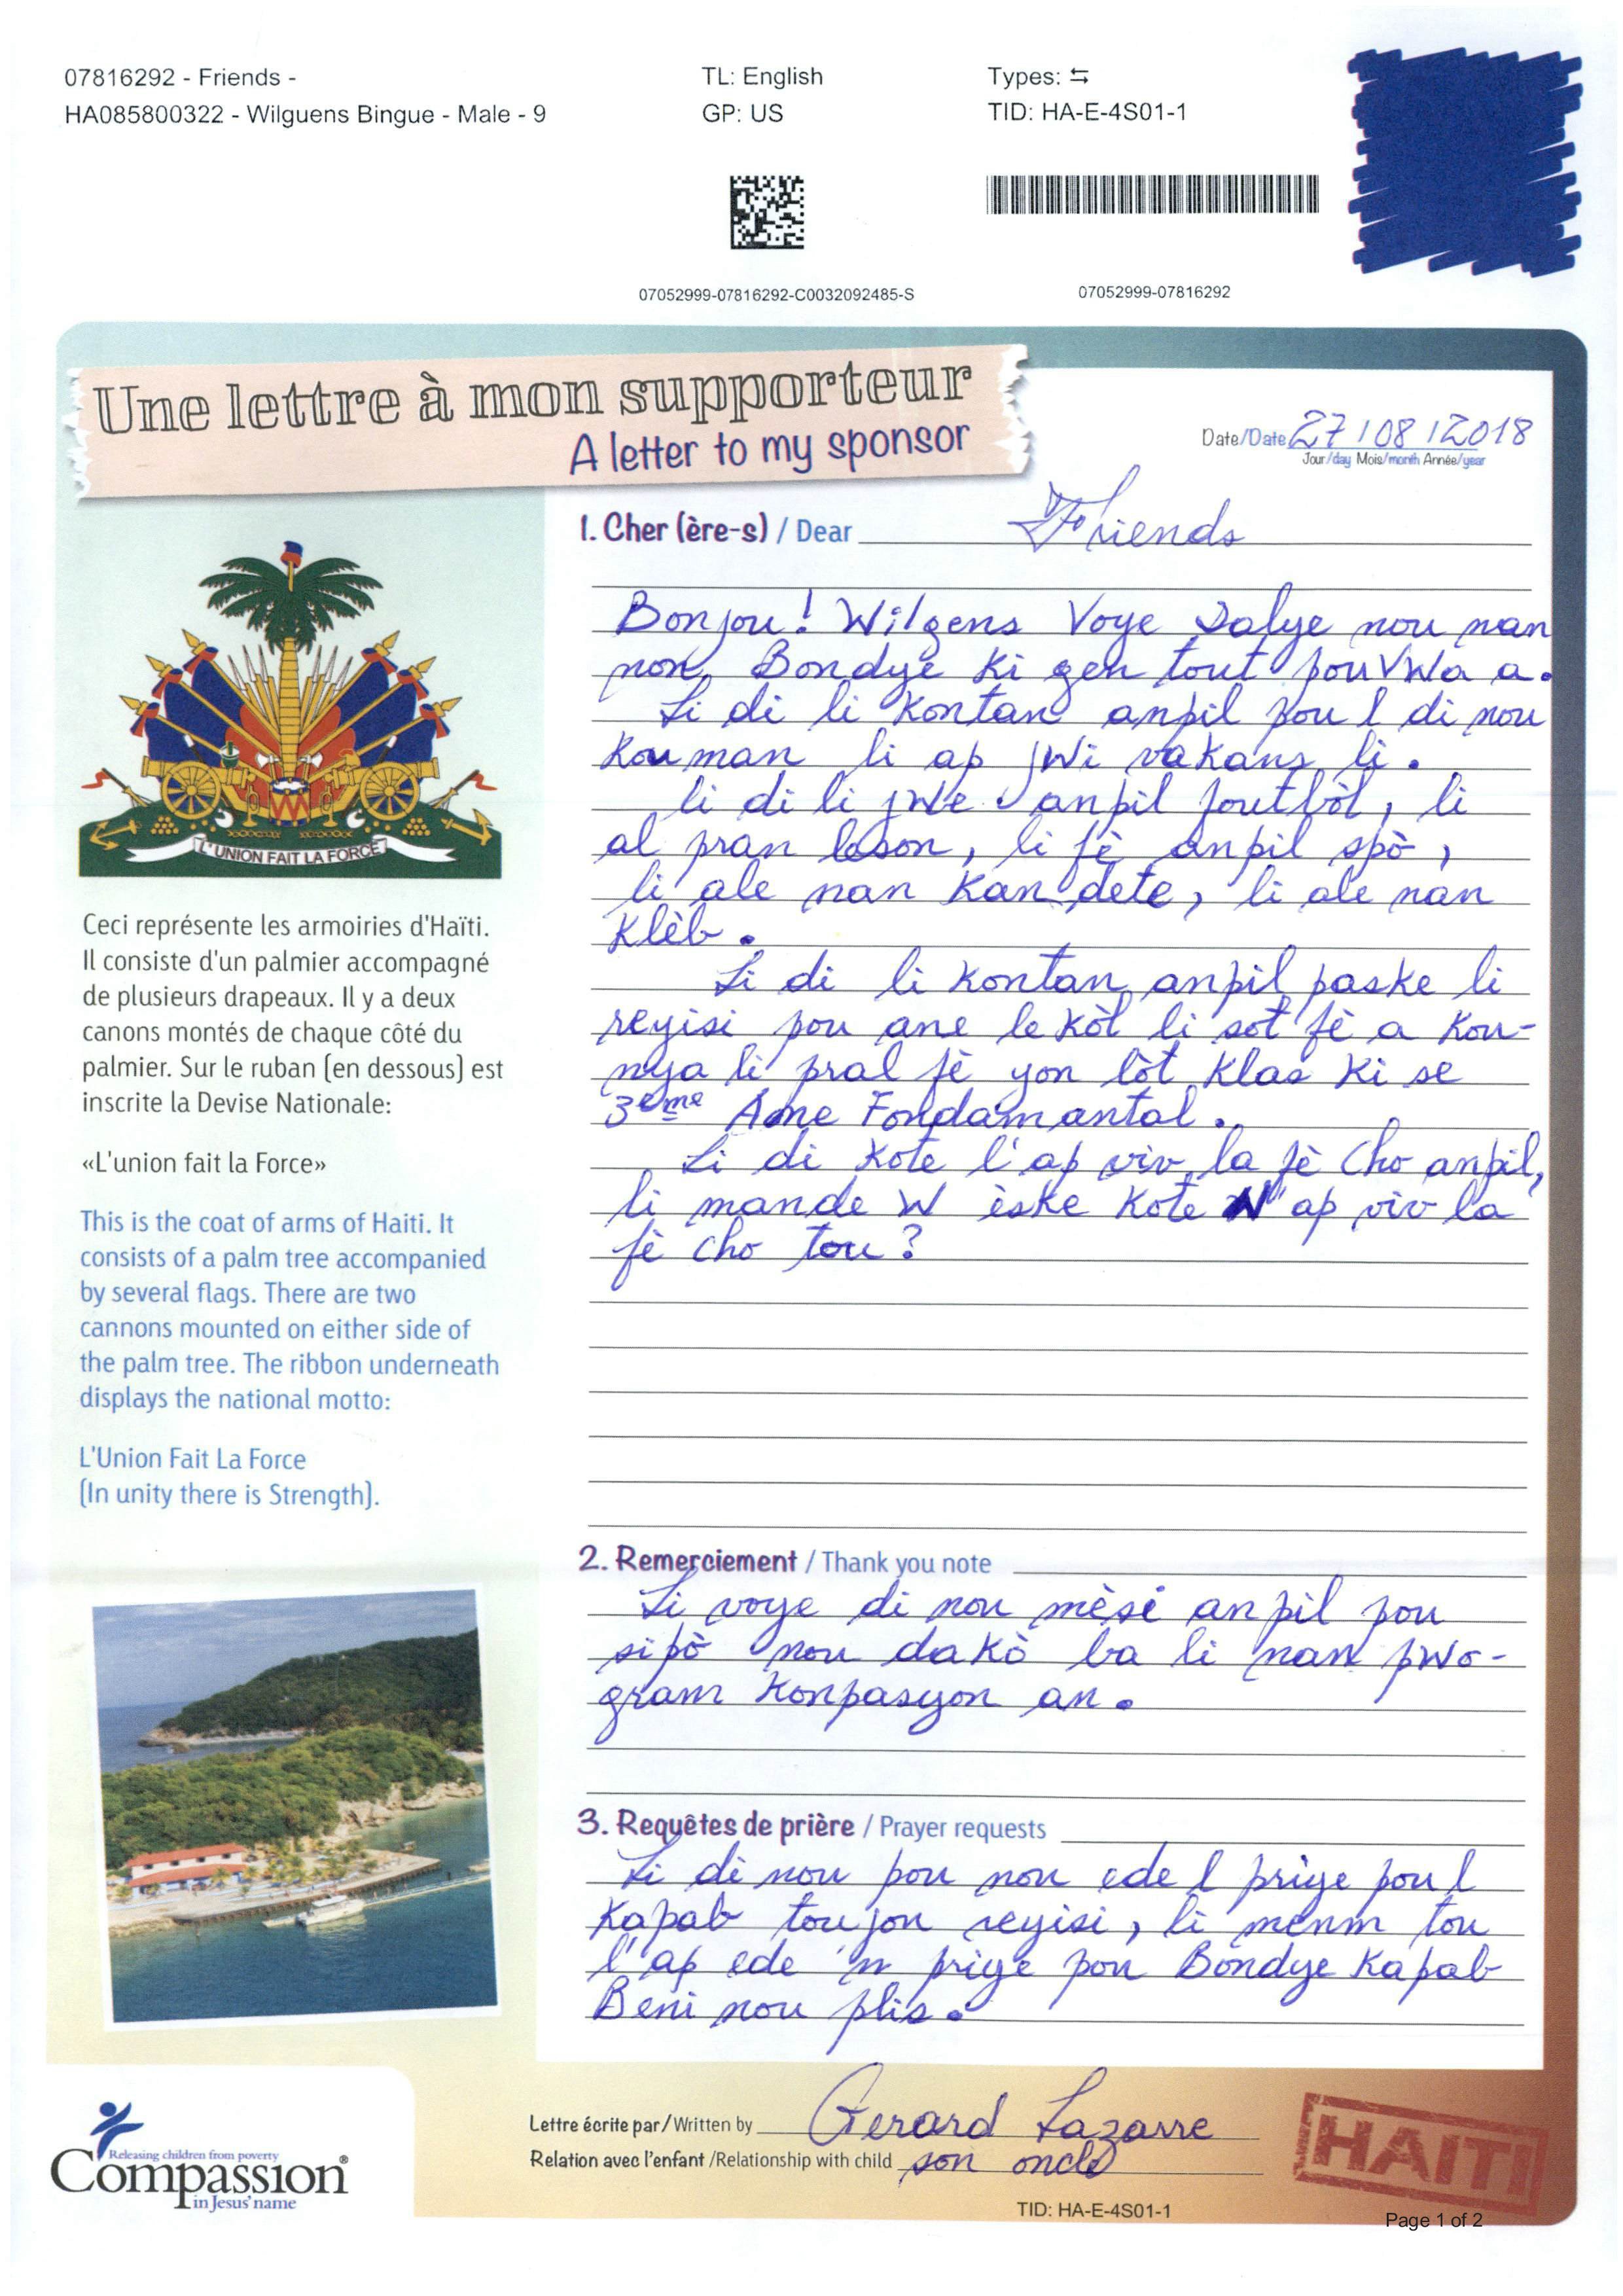 07816292 - Friends -
HA085800322 - Wilguens Bingue - Male - 9
TL: English
GP: US
Types: ⇆
TID: HA-E-4S01-1
07052999-07816292-C0032092485-S
07052999-07816292
Une lettre à mon supporteur
A letter to my sponsor
Date/Date 27/08/2018
Jour/day Mois/month Année/year
L'UNION FAIT LA FORCE
Ceci représente les armoiries d'Haïti.
Il consiste d'un palmier accompagné
de plusieurs drapeaux. Il y a deux
canons montés de chaque côté du
palmier. Sur le ruban (en dessous) est
inscrite la Devise Nationale:
«L'union fait la Force»
This is the coat of arms of Haiti. It
consists of a palm tree accompanied
by several flags. There are two
cannons mounted on either side of
the palm tree. The ribbon underneath
displays the national motto:
L'Union Fait La Force
(In unity there is Strength).
1. Cher (ère-s) / Dear Friends
Bonjou! Wilgens Voye Salye nou nan
non Bondye ki gen tout pouvwa a.
Li di li kontan anpil pou l di nou
kouman li ap jwi vakans li.
li di li jwe anpil foutbòl, li
al pran leson, li fè anpil spò,
li ale nan kan dete, li ale nan
klèb.
Li di li kontan anpil paske li
reyisi pou ane lekòl li sot fè a kou-
nya li pral fè yon lòt klas ki se
3eme Ane Fondamantal.
Li di kote l'ap viv la fè cho anpil,
li mande w èske kote N'ap viv la
fè cho tou?
2. Remerciement / Thank you note
Li voye di nou mèsi anpil pou
sipò nou dakò ba li nan pwo-
gram konpasyon an.
3. Requêtes de prière / Prayer requests
Li di nou pou nou ede l priye pou l
kapab toujou reyisi, li menm tou
l'ap ede 'n priye pou Bondye kapab
Beni nou plis.
Lettre écrite par/Written by Gerard Lazarre
Relation avec l'enfant /Relationship with child son oncle
Releasing children from poverty
Compassion®
in Jesus' name
HAITI
TID: HA-E-4S01-1
Page 1 of 2